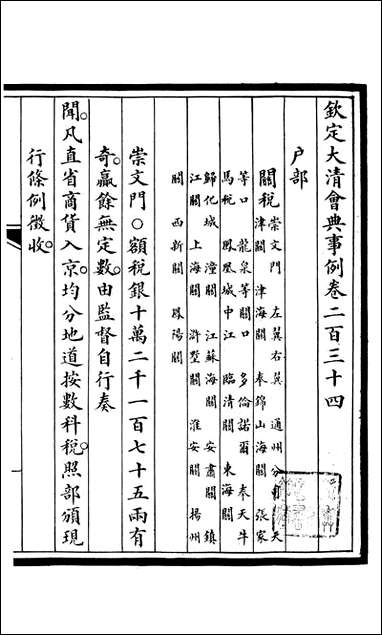 欽定大清會典事例卷二百三十四
户部
關稅
崇文門 左翼右翼 通州分
天津關 津海關 奉錦山海關 張家
等口 龍泉等關口 多倫諾爾 奉天牛
馬稅 鳳凰城中江 臨清關 東海關
歸化城 潼關 江蘇海關 安肅關 鎮
江關 上海關 滸墅關 淮安關 揚州
關 西新關 鳳陽關
崇文門○額稅銀十萬二千一百七十五兩有
奇贏餘無定數由監督自行奏
聞凡直省商貨入京均分地道按數科稅照部頒現
行條例徵收